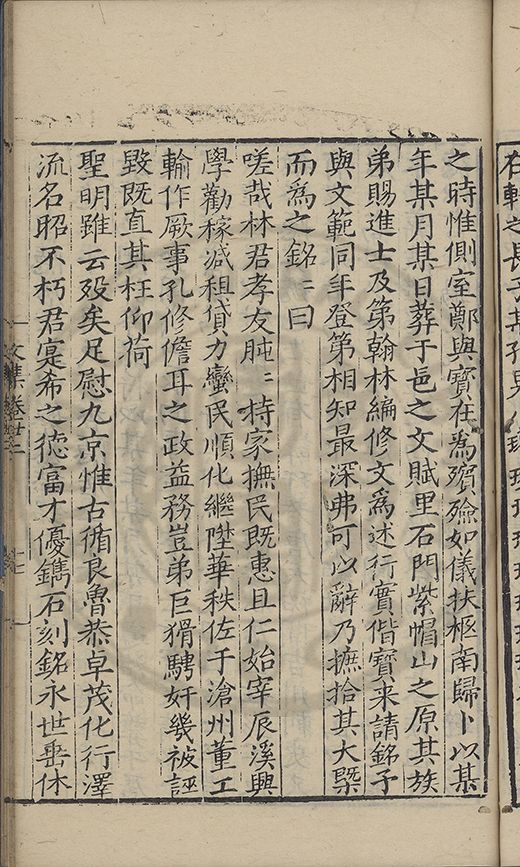 之時惟側室鄭與寳在為殯殮如儀扶柩南歸卜以某
年某月某日葬于邑之文賦里石門紫帽山之原其族
弟賜進士及第翰林編修文為述行實偕寳来請銘予
與文範同年登第相知最深弗可以辭乃摭拾其大槩
而為之銘〻曰
嗟哉林君孝友肫〻持家撫民既惠且仁始宰辰溪興
學勸稼減租貸力蠻民順化繼陞華秩佐于滄州董工
輸作厥事孔修儋耳之政益務豈弟巨猾騁奸幾被誣
毀既直其枉仰荷
聖明雖云殁矣足慰九京惟古循良魯恭卓茂化行澤
流名昭不朽君寔希之徳富才優鐫石刻銘永世垂休
文集卷廿二
十七
右軾之長子其